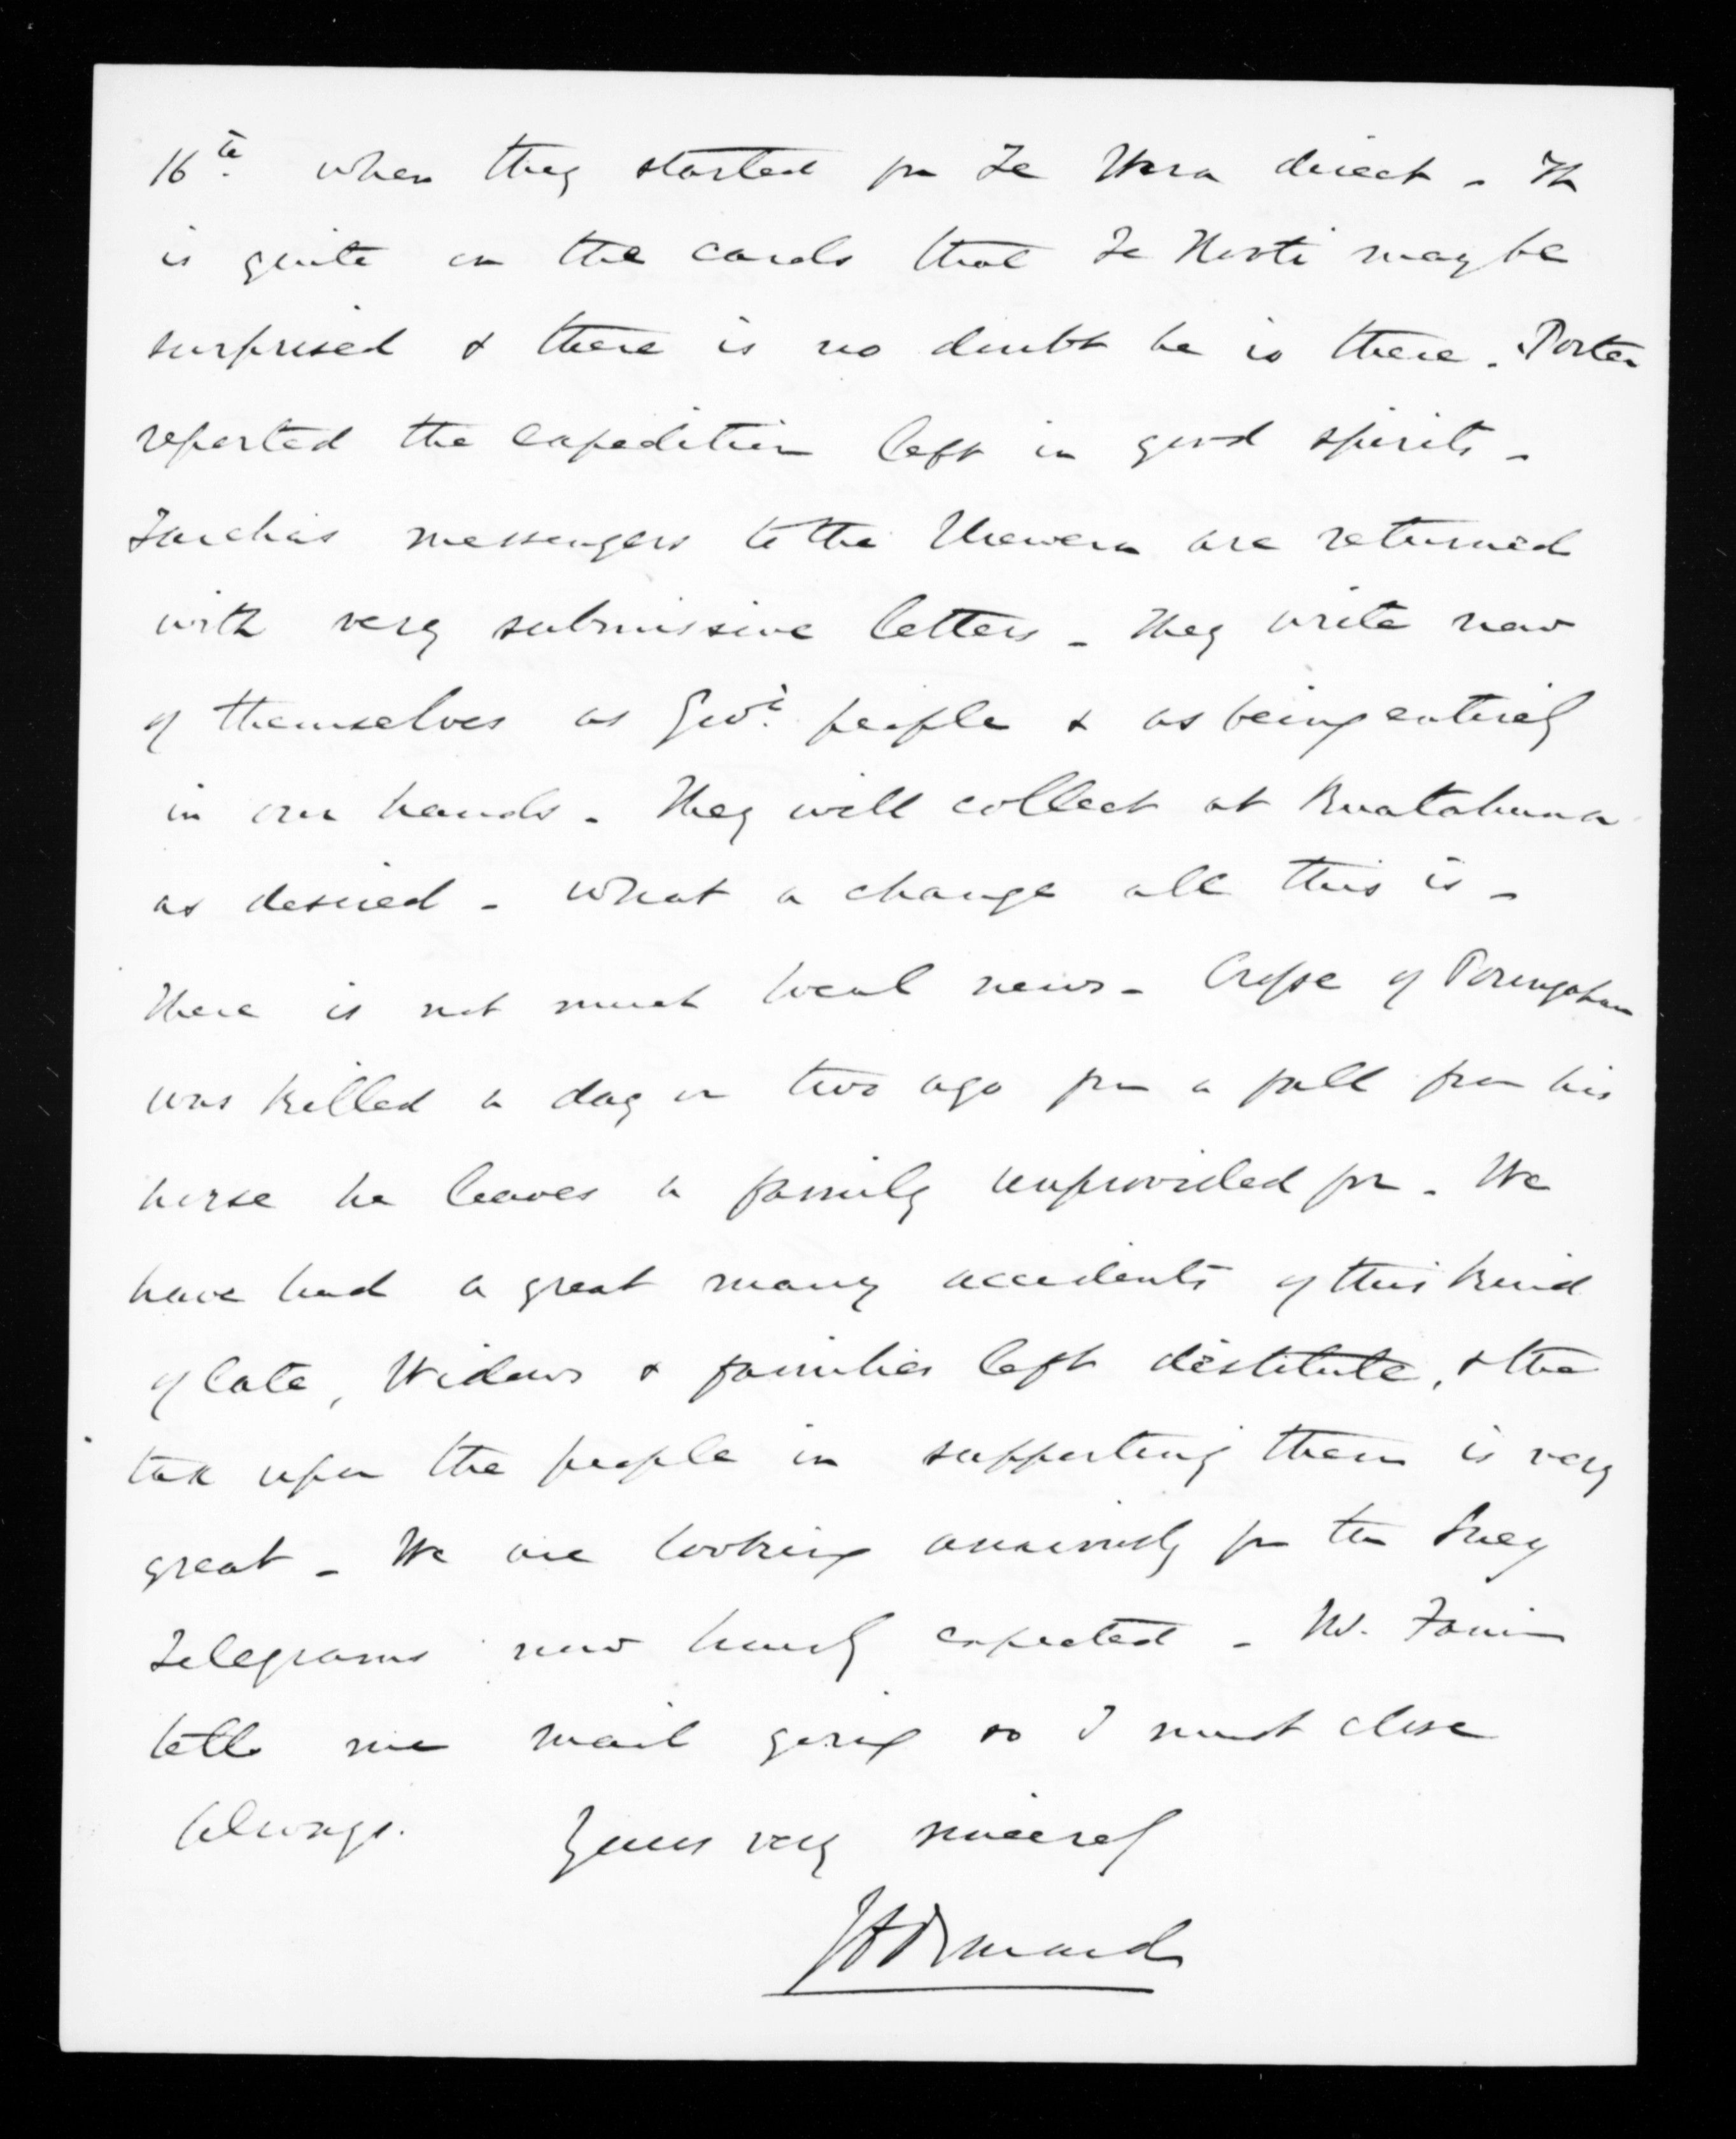 16th when they started for Te Wera direct - It
is quite on the cards that Te Kooti may be
surprised & there is no doubt he is there. Porter
reported the expedition left in good spirits -
Tareha's messengers to the Urewera are returned
with very submissive letters - They write now
of themselves as Govt people & as being entirely
in our hands - They will collect at Ruatahuna
as desired - What a change all this is -
There is not much local news - Crosse of Porangahau
was killed a day or two ago from a fall from his
horse he leaves a family unprovided for - We
have had a great many accidents of this kind
of late, Widows & families left destitute, & the
tax upon the people in supporting them is very
great - We are looking anxiously for the Suez
Telegrams now hourly expected - Mr.
tells me mail going so I must close
Always. Yours very sincerely
J D Ormond